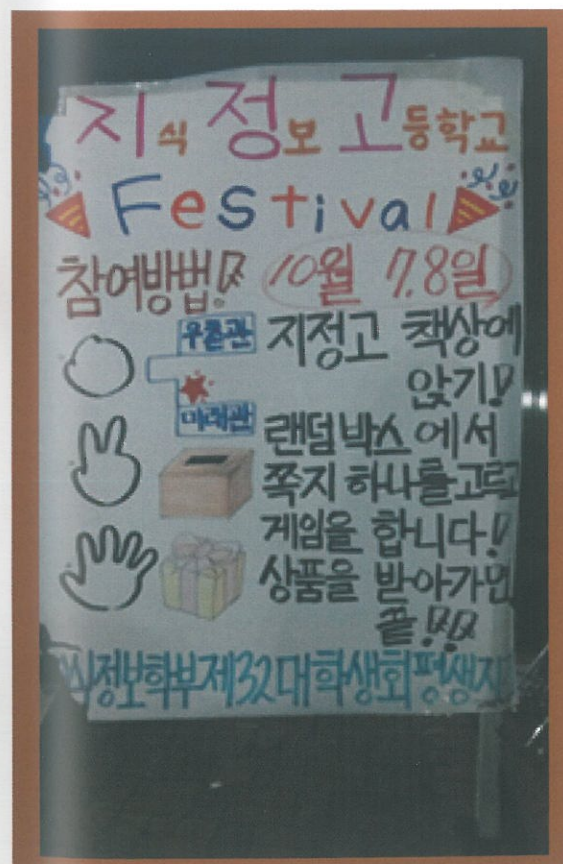 지식 정보 고등학교
Festival
참여방법!! 10월 7.8일
우촌관
미래관
지정고 책상에
앉기!!
랜덤박스에서
쪽지 하나를 고르고
게임을 합니다!!
상품을 받아가면
끝!!!!
식정보학부제32대학생회평생지